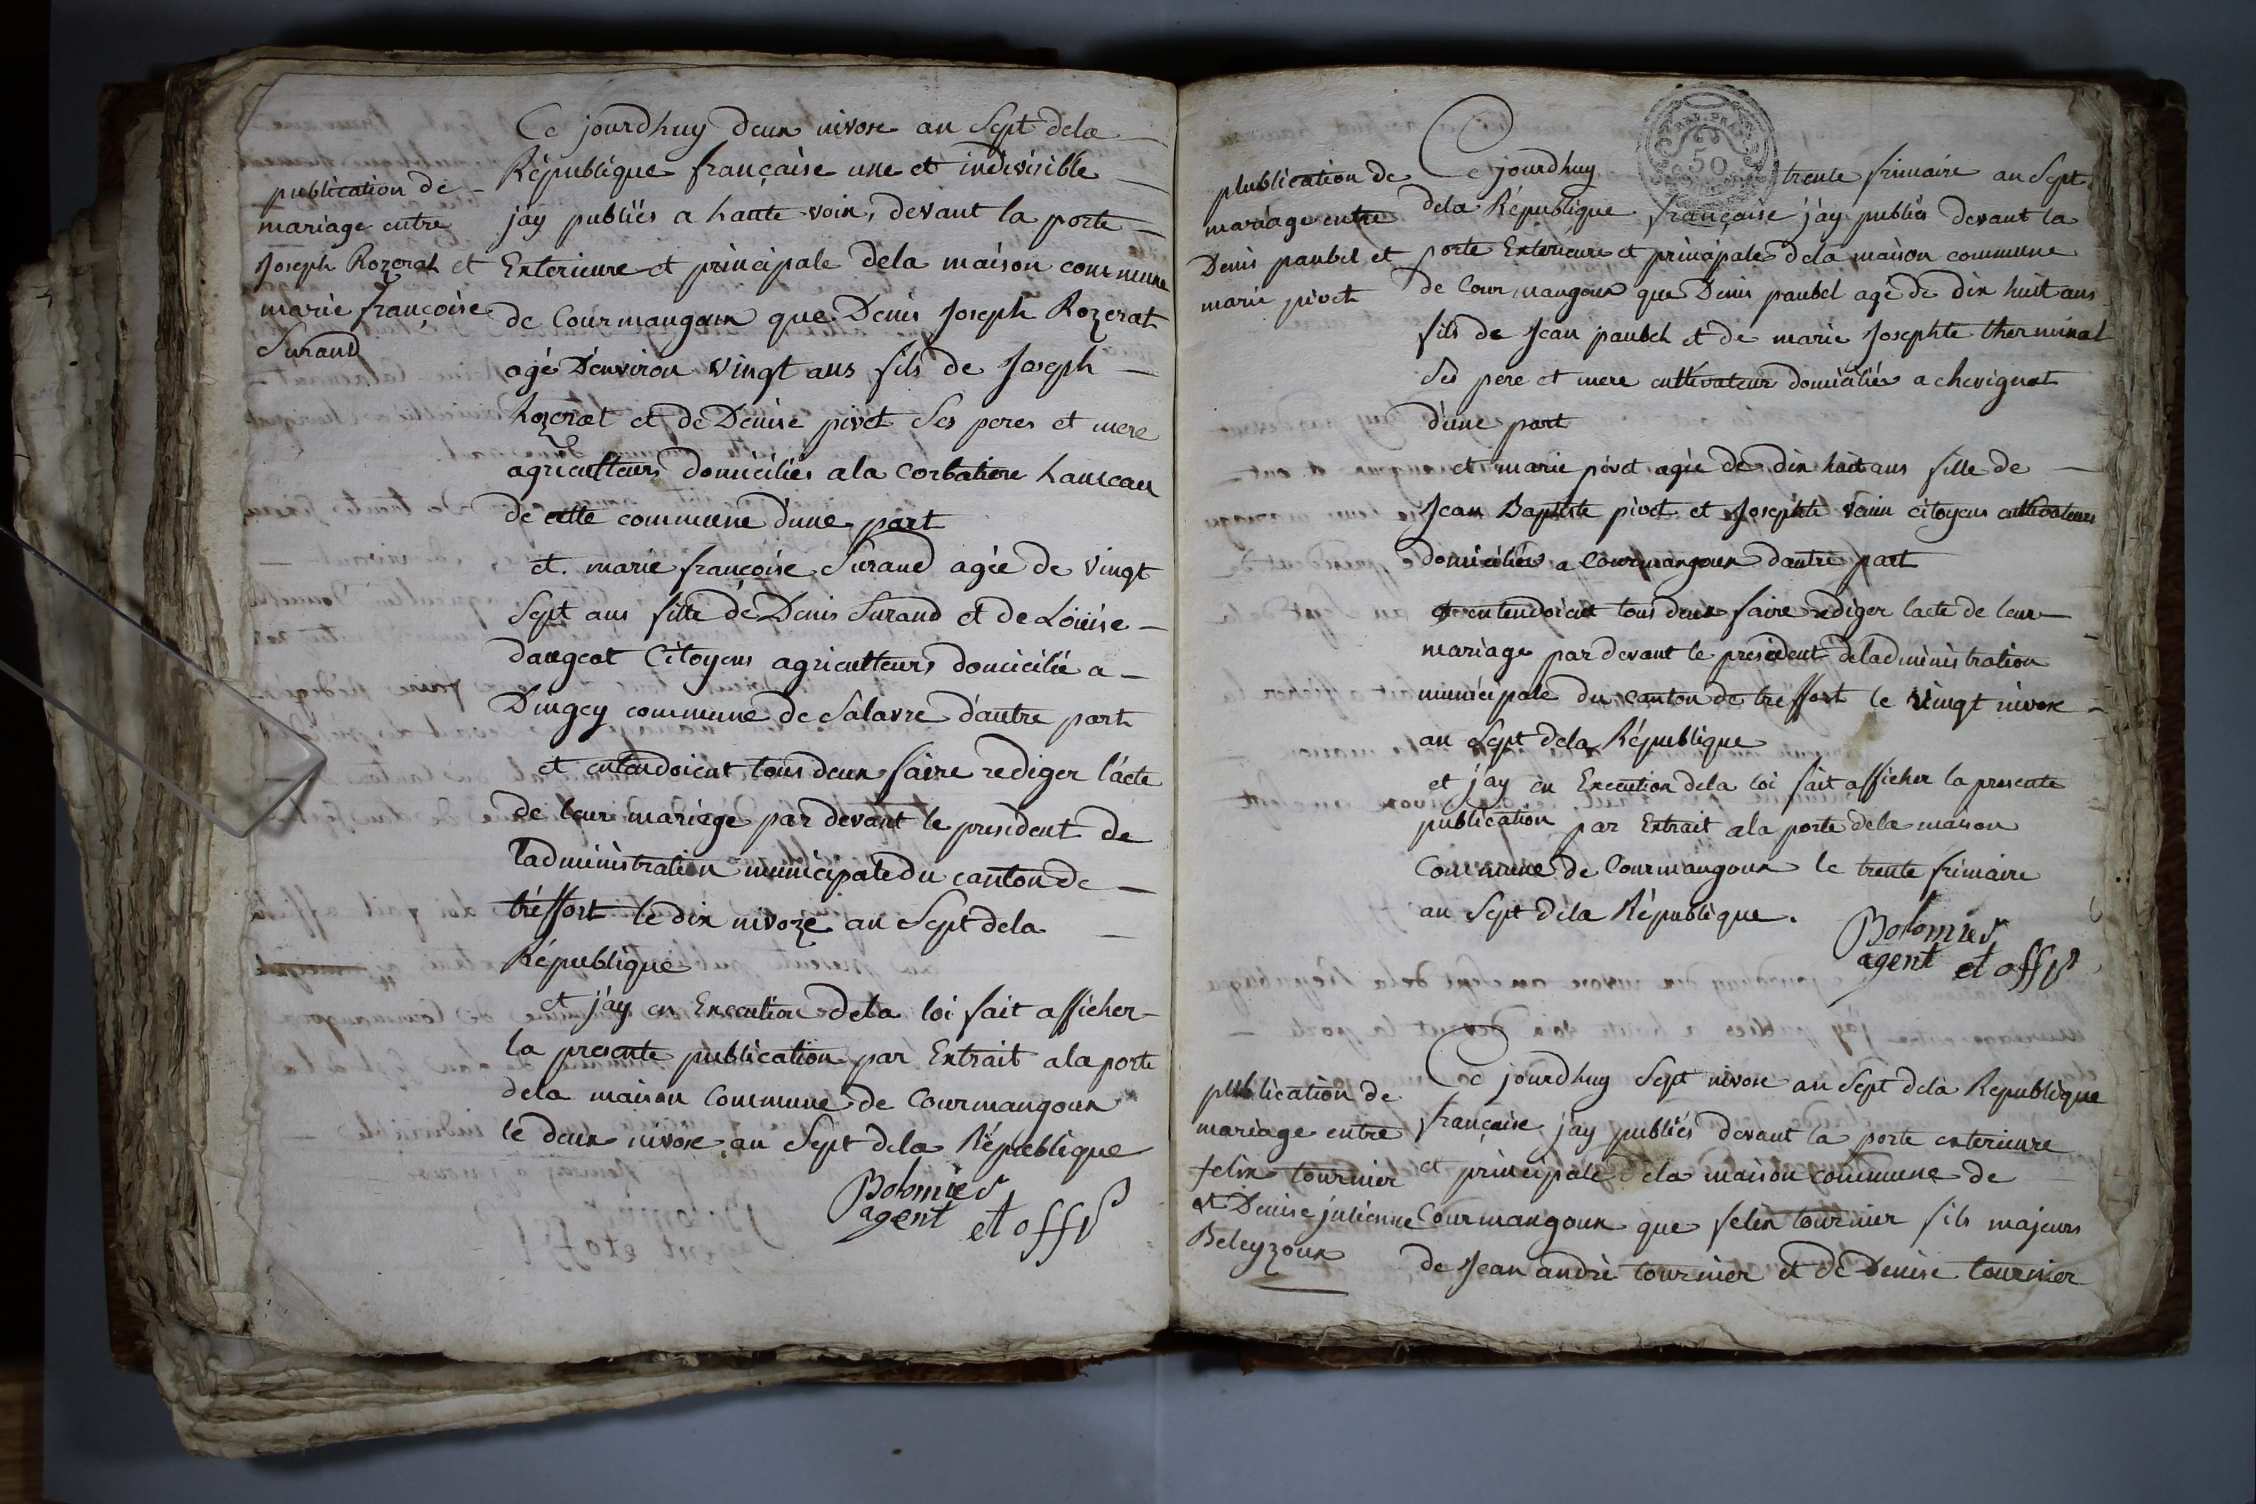 publication de
mariage entre
Joseph Rozerat et
marie françoise
Surand
Ce jourdhuy deux nivose an Sept dela
République française une et indivisible
jay publiés a haute voix, devant la porte
Exterieure et principale dela maison commune
de Courmangoux que Denis Joseph Rozerat
agé D'environ vingt ans fils de Joseph
Rozerat et de Denise pivet Ses peres et mere
agriculteurs domiciliés ala Corbatiere hameau
de cette commune d'une part
et marie françoise Surand agée de Vingt
Sept ans fille de Denis Surand et de Loüise
dangeot Citoyens agriculteurs domicilié a
Dingey commune de Salavre d'autre part
et entendoient tous deux faire rediger l'acte
de leur mariage par devant le president de
l'administration municipale du canton de
tréffort le dix nivoze an Sept dela
République
et j'ay en Execution dela loi fait afficher
la presente publication par Extrait ala porte
dela maison Commune de Courmangoux
le deux nivose an Sept dela République
Bolomier
agent et offr
50
plublication de
mariage entre
Denis paubel et
marie pivet
Ce jourdhuy trente frimaire an Sept
dela République française j'ay publiés devant la
porte Exterieure et principale dela maison commune
de Courmangoux que Denis paubel agé de dix huit ans
fils de Jean paubel et de marie Josephte therminal
Ses pere et mere cultivateur domiciliés a chevignat
d'une part
et marie pivet agée de dix huit ans fille de
Jean Baptiste pivet et Josephte vaim citoyens cultivateurs
domiciliés a Courmangoux dautre part
et entendoient tous deux faire rediger lacte de leur
mariage par devant le president deladministration
municipale du canton de treffort le vingt nivose
an Sept dela République
et j'ay en Execution dela loi fait afficher la presente
publication par Extrait ala porte dela maison
Commune de Courmangoux le trente frimaire
an Sept dela République.
Bolomier
agent et offr
publication de
mariage entre
felix tournier
et Denise julienne
Beleyzoux
Ce jourdhuy Sept nivose an Sept dela Republique
française jay publiés devant la porte exterieure
et principale dela maison commune de
Courmangoux que felix tournier fils majeurs
de Jean andré tournier et de Denise tournier